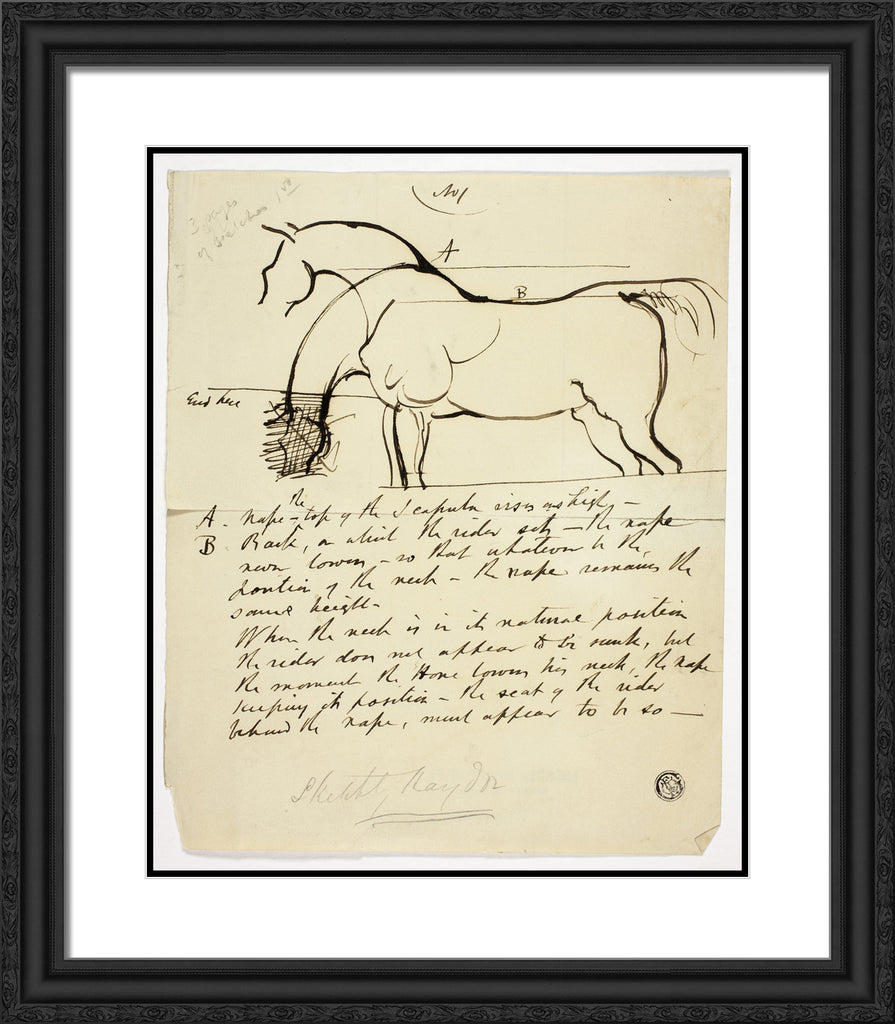 No 1
3 pages
of sketches 1st
A
B
End here
the
A. Nape - top of the Scapula rises as high -
B. Back, on which the rider sits - the nape
never lowers - so that whatever be the
position of the neck - the nape remains the
same height -
When the neck is in its natural position
the rider does not appear to be sunk, but
the moment the Horse lowers his neck, the nape
keeping its position - the seat of the rider
behind the nape, must appear to be so -
Sketch by Haydon